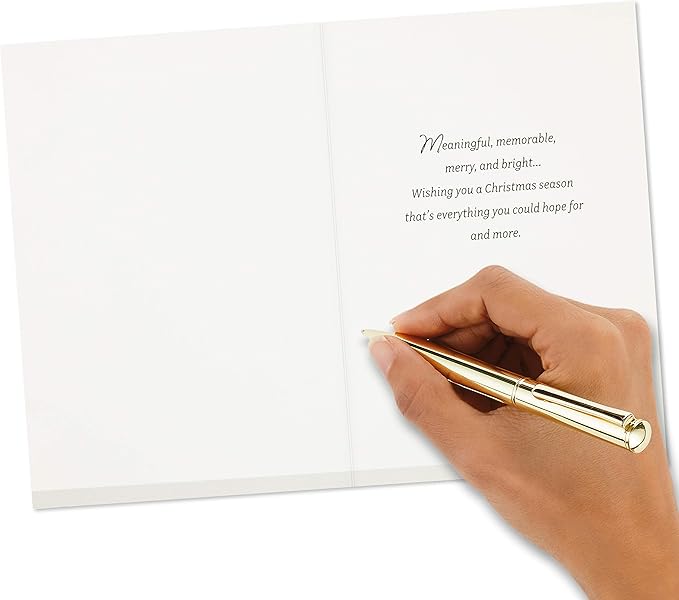 Meaningful, memorable,
merry, and bright...
Wishing you a Christmas season
that's everything you could hope for
and more.